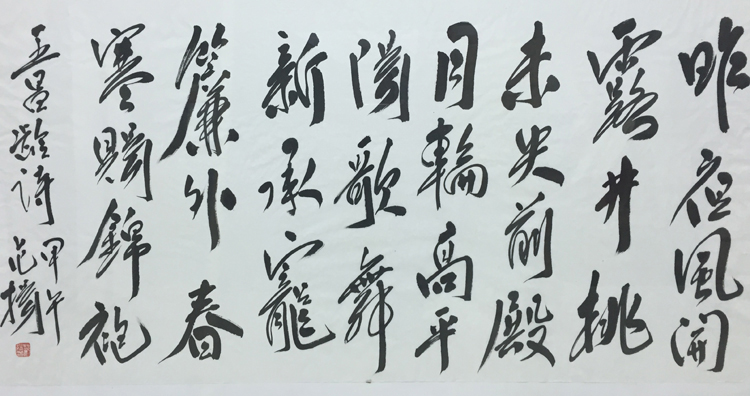 昨夜風開
露井桃
未央前殿
月輪高平
陽歌舞
新承寵
簾外春
寒賜錦袍
王昌齡詩
甲午
范